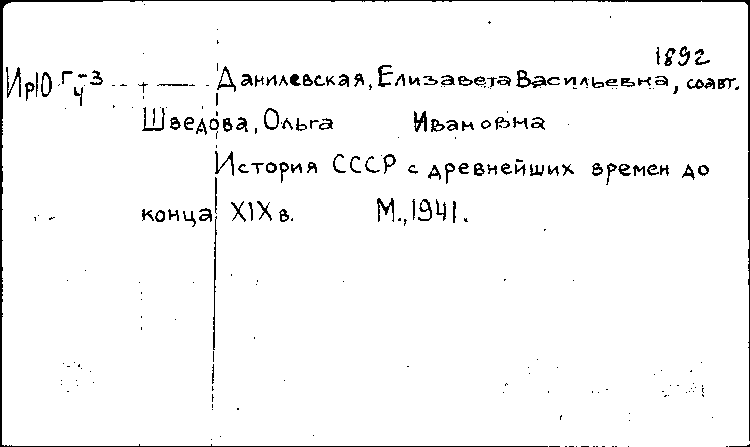 1892
Ир10 Г-3/4 Данилевская, Елизавета Васильевна, соавт.
Шведова, Ольга Ивановна
История СССР с древнейших времен до
конца XIX в. М., 1941.